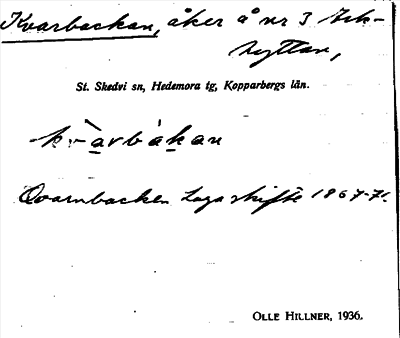 Kvarbackan, åker å nr 3 Ark-
hyttan,
St. Skedvi sn, Hedemora tg, Kopparbergs län.
kvàrbákan
Qvarnbacken Laga skifte 1867-71.
OLLE HILLNER, 1936.